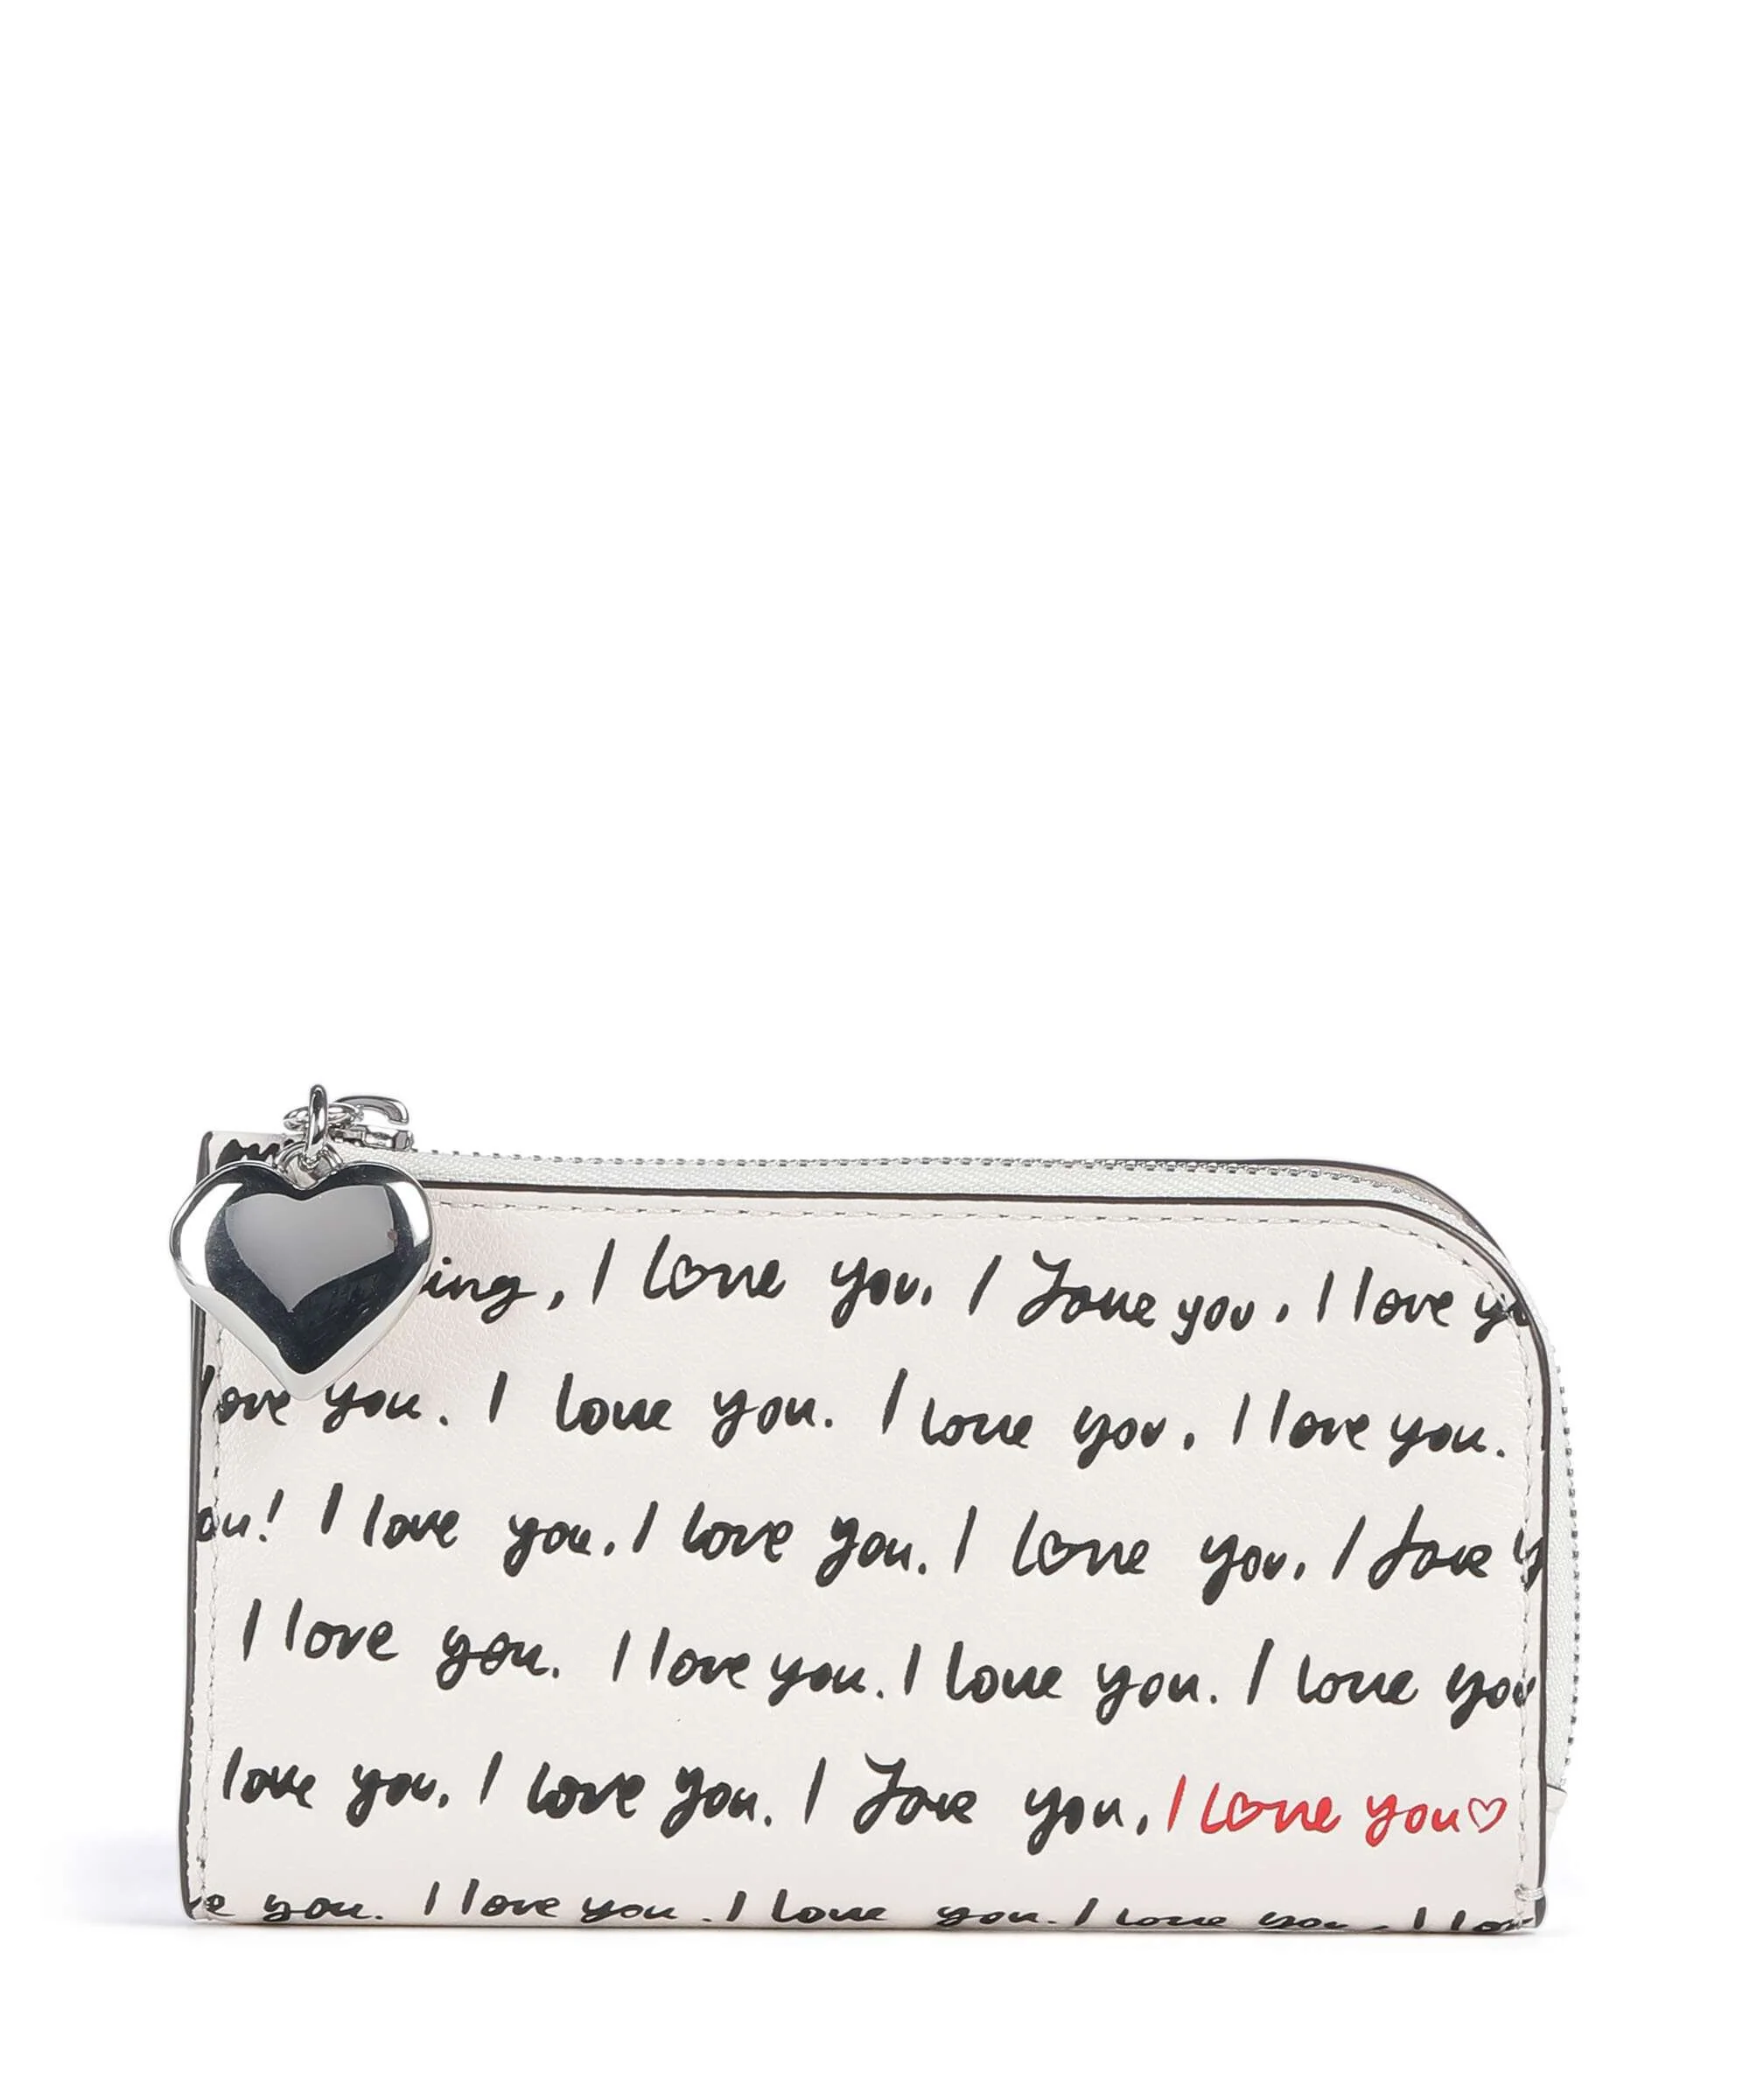 I love you. I love you. I love you
you. I love you. I love you. I love you.
I love you. I love you. I love you. I love
I love you. I love you. I love you. I love you
love you. I love you. I love you. I love you♡
you. I love you. I love you. I love you. I